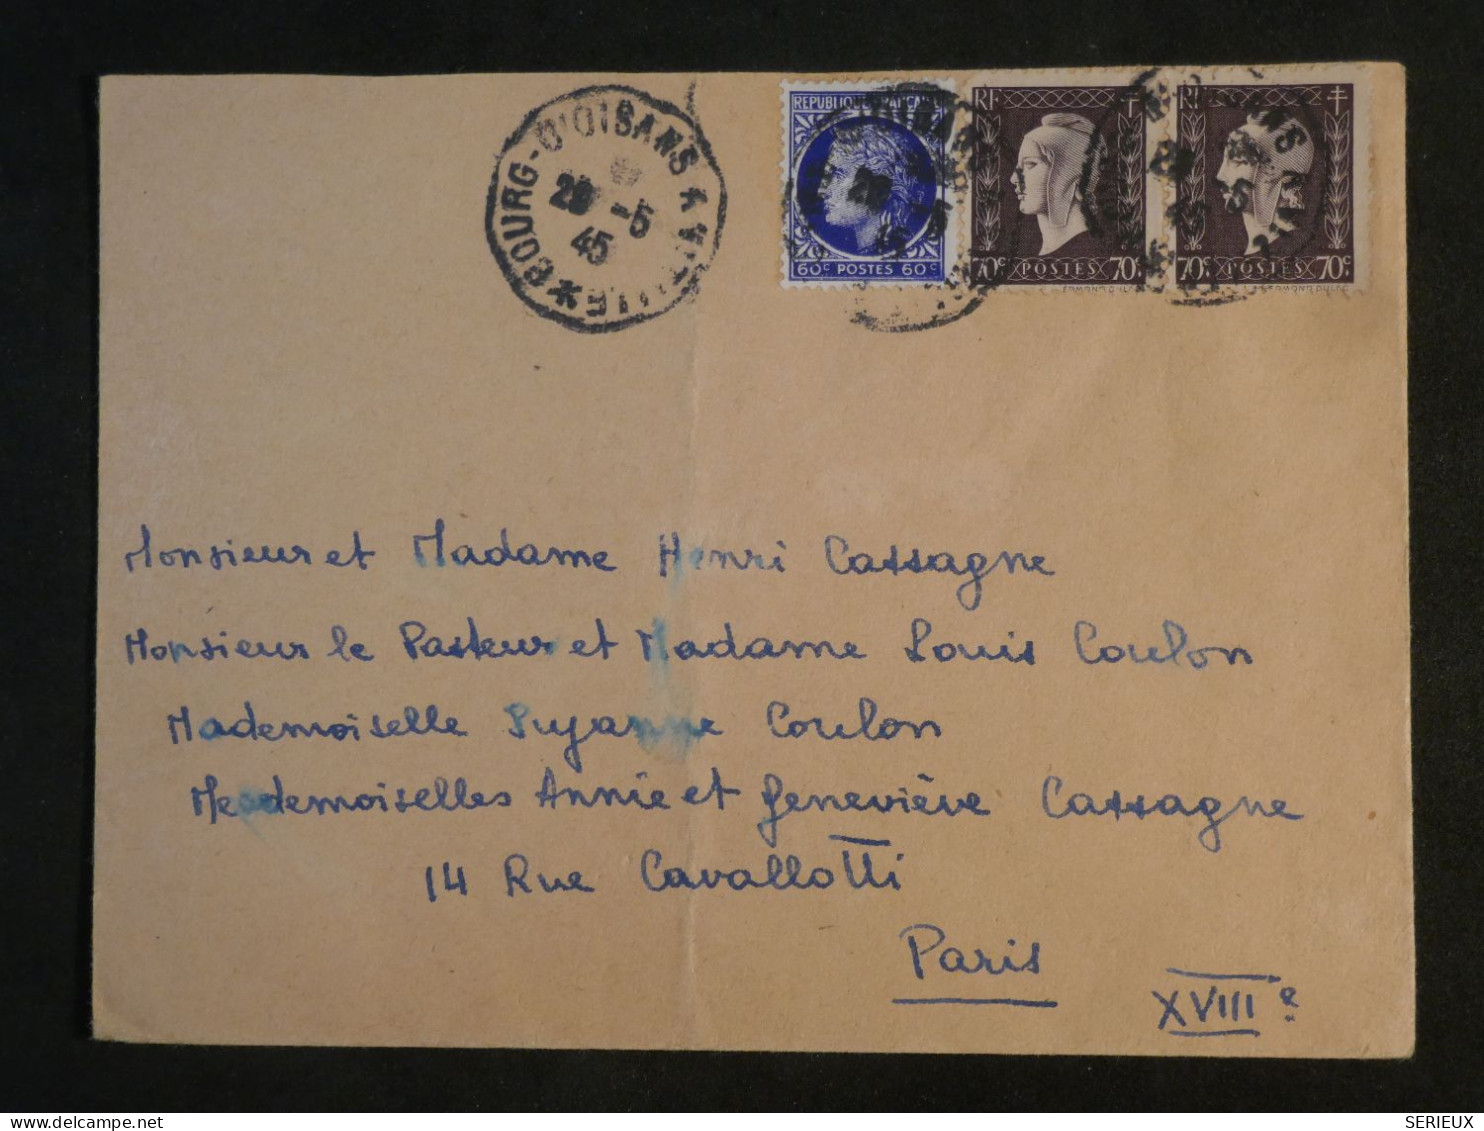 BOURG-D'OISANS A VIZILLE
28 -5
45
REPUBLIQUE FRANÇAISE
60c POSTES 60c
RF
70c POSTES 70c
RF
70c POSTES 70c
Monsieur et Madame Henri Cassagne
Monsieur le Pasteur et Madame Louis Coulon
Mademoiselle Suzanne Coulon
Mesdemoiselles Annie et Geneviève Cassagne
14 Rue Cavallotti
Paris
XVIIIe
SERIEUX